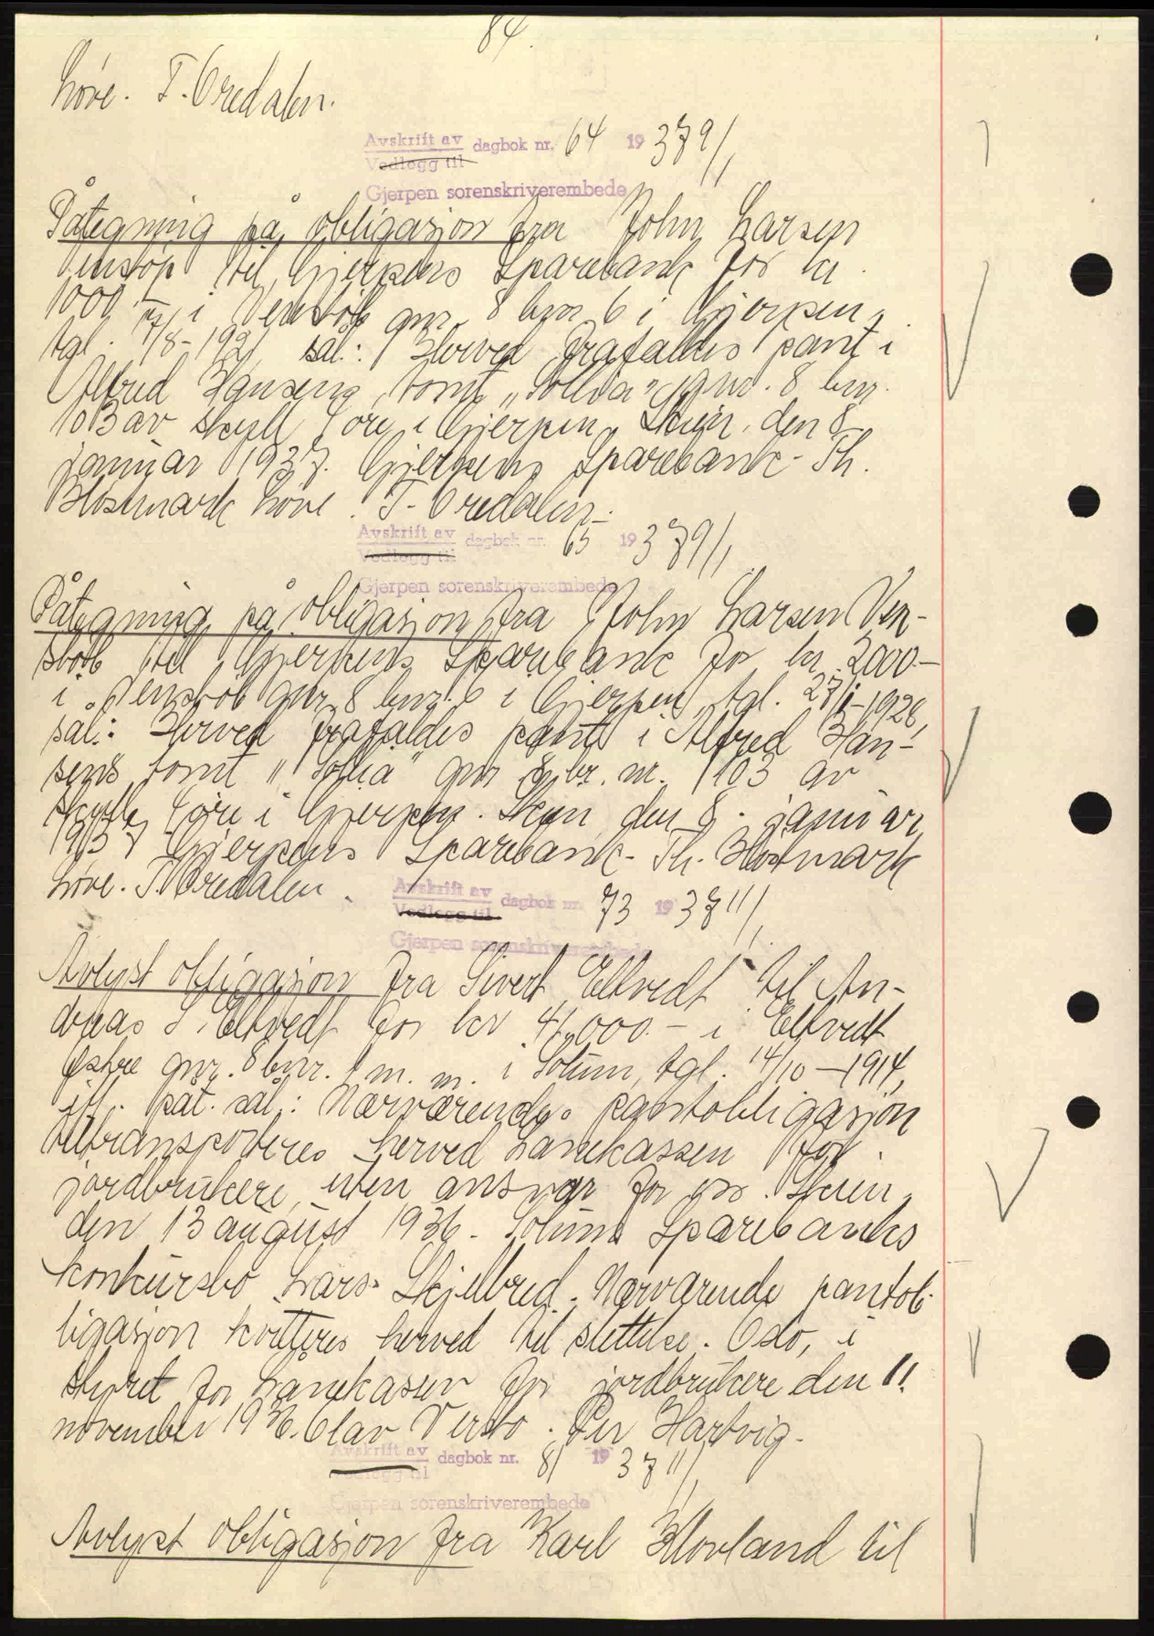 84.
høie. T. Oredalen.
Avskrift av dagbok nr. 64 19 37 9/1
Vedlegg til
Gjerpen sorenskriverembede
Påtegning på obligasjon fra John Larsen
Venstøp til Gjerpens Sparebank for kr.
1000.- i Venstøb gnr. 8 bnr 6 i Gjerpen,
tgl. /8-1921 sål.: Herved frafaldes pant i
Alfred Hansens tomt "Sollia" gnr. 8 bnr.
103 av skyld 1 øre i Gjerpen. Skien, den 8
januar 1937. Gjerpens Sparebank - Th.
høie. T. Oredalen.
Avskrift av dagbok nr. 65 19 37 9/1
Vedlegg til
Gjerpen sorenskriverembede
Påtegning på obligasjon fra John Larsen Ven-
støb til Gjerpens Sparebank for kr. 2000.-
i Venstøb gnr 8 bnr. 6 i Gjerpen, tgl. 1926,
sål.: Herved frafaldes pant i Alfred Han-
sens tomt "Sollia" gnr 8 br. nr. 103 av
skyld 1 øre i Gjerpen. Skien den 8. januar
1937 Gjerpens Sparebank - Th.
høie. T. Oredalen.
Avskrift av dagbok nr. 73 19 37 11/1
Vedlegg til
Gjerpen sorenskriverembede
Avlyst obligasjon fra Sivert Eltvedt til An-
dreas S. Eltvedt for kr 41,000.- i Eltvedt
østre gnr. 8 bnr. 1 m. m. i Solum, tgl. 14/10 - 1914,
jfr. påt. sål.: Nærværende pantobligasjon
tiltransporteres herved Lånekassen for
jordbrukere uten ansvar for os. Skien,
den 13 august 1936. Solum Sparebanks
konkursbo Lars Skjelbred. Nærværende pantob-
ligasjon kvitteres herved til slettelse. Oslo, i
styret for Lånekassen for jordbrukere den 11.
november 1936. Olav Versto. Per Hartvig.
Avskrift av dagbok nr. 81 19 37 11/1
Vedlegg til
Gjerpen sorenskriverembede
Avlyst obligasjon fra Karl Klovland til